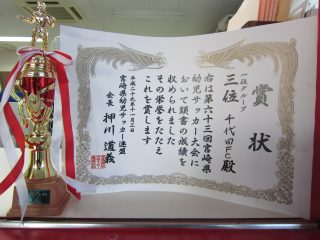 賞状
一位グループ
三位 千代田FC殿
右は第六十三回宮崎県
幼児サッカー大会に
おいて頭書の成績を
収められました
その栄誉をたたえ
これを賞します
平成二十九年十一月三日
宮崎県幼児サッカー連盟
会長 押川道義